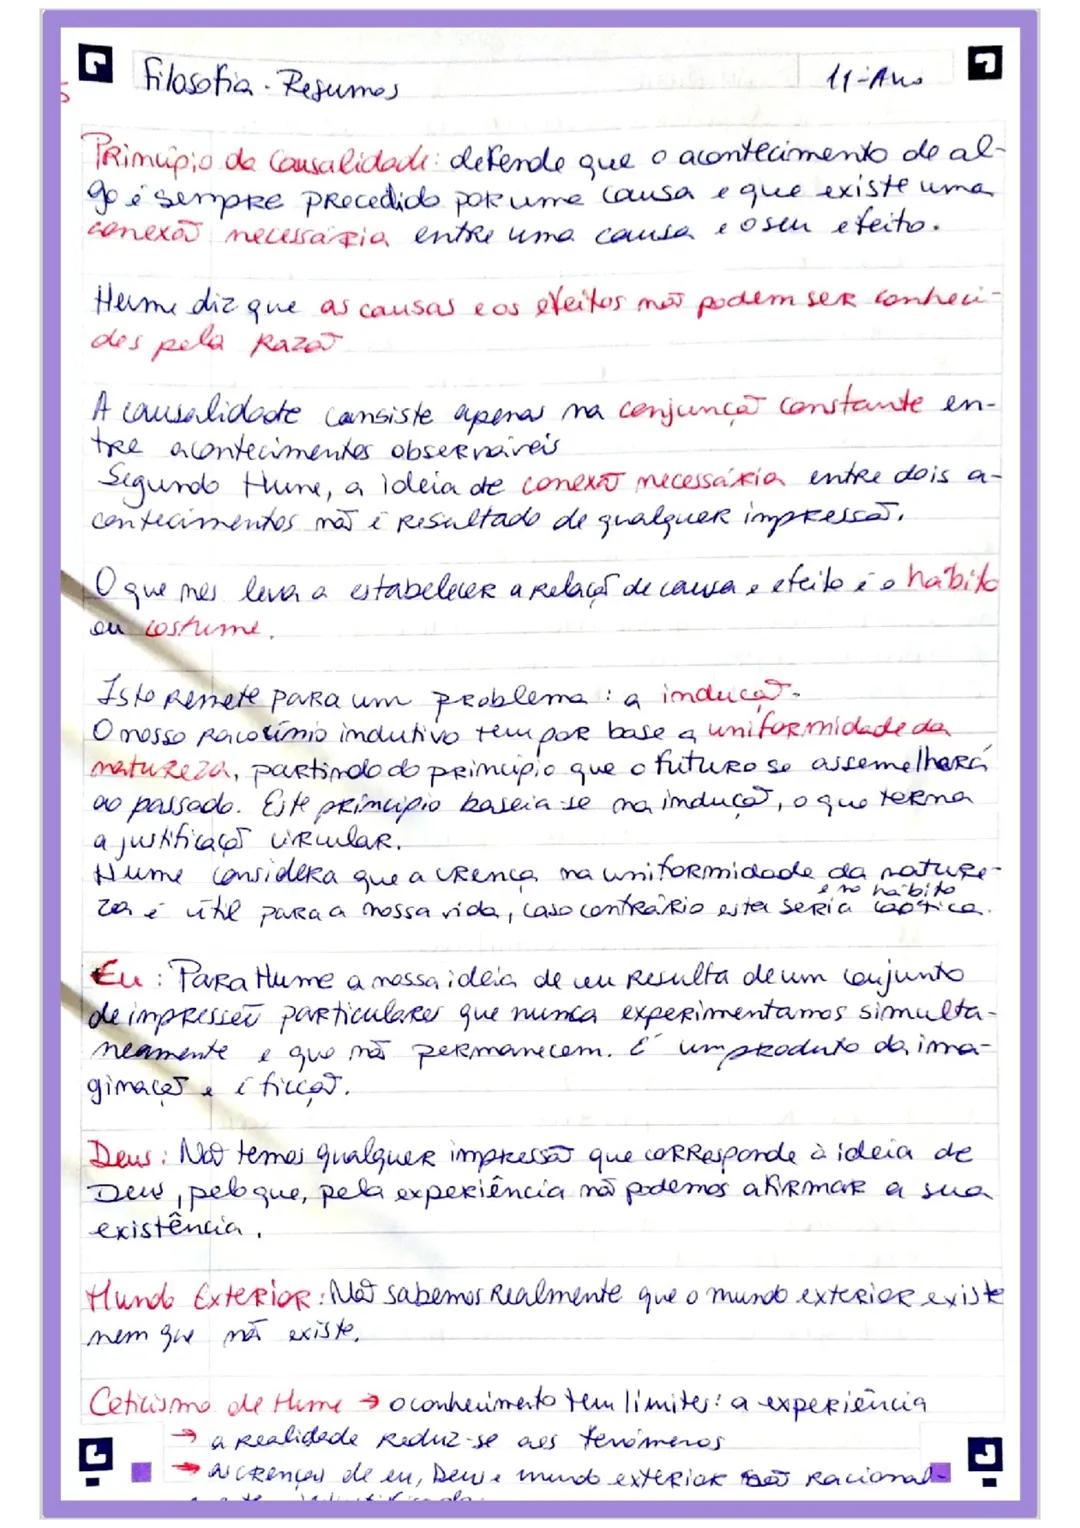 Filosofia - Resumos 11-Ano
Princípio da Causalidade: defende que o acontecimento de al-
go é sempre precedido por uma causa e que existe uma
conexão necessária entre uma causa e o seu efeito.
Hume diz que as causas e os efeitos não podem ser conheci-
dos pela razão
A causalidade consiste apenas na conjunção constante en-
tre acontecimentos observáveis
Segundo Hume, a ideia de conexão necessária entre dois a-
contecimentos não é resultado de qualquer impressão.
O que nos leva a estabelecer a relação de causa e efeito é o hábito
ou costume.
Isto remete para um problema: a indução.
O nosso raciocínio indutivo tem por base a uniformidade da
natureza, partindo do princípio que o futuro se assemelhará
ao passado. Este princípio baseia-se na indução, o que torna
a justificação circular.
Hume considera que a crença na uniformidade da nature-
e no hábito
za é útil para a nossa vida, caso contrário esta seria caótica.
Eu: Para Hume a nossa ideia de eu resulta de um conjunto
de impressões particulares que nunca experimentamos simulta-
neamente e que não permanecem. É um produto da ima-
ginação e é ficção.
Deus: Não temos qualquer impressão que corresponde à ideia de
Deus, pelo que, pela experiência não podemos afirmar a sua
existência.
Mundo Exterior: Não sabemos realmente que o mundo exterior existe
nem que não existe.
Ceticismo de Hume → o conhecimento tem limites: a experiência
→ a realidade reduz-se aos fenómenos
→ as crenças de eu, Deus e mundo exterior são racional-